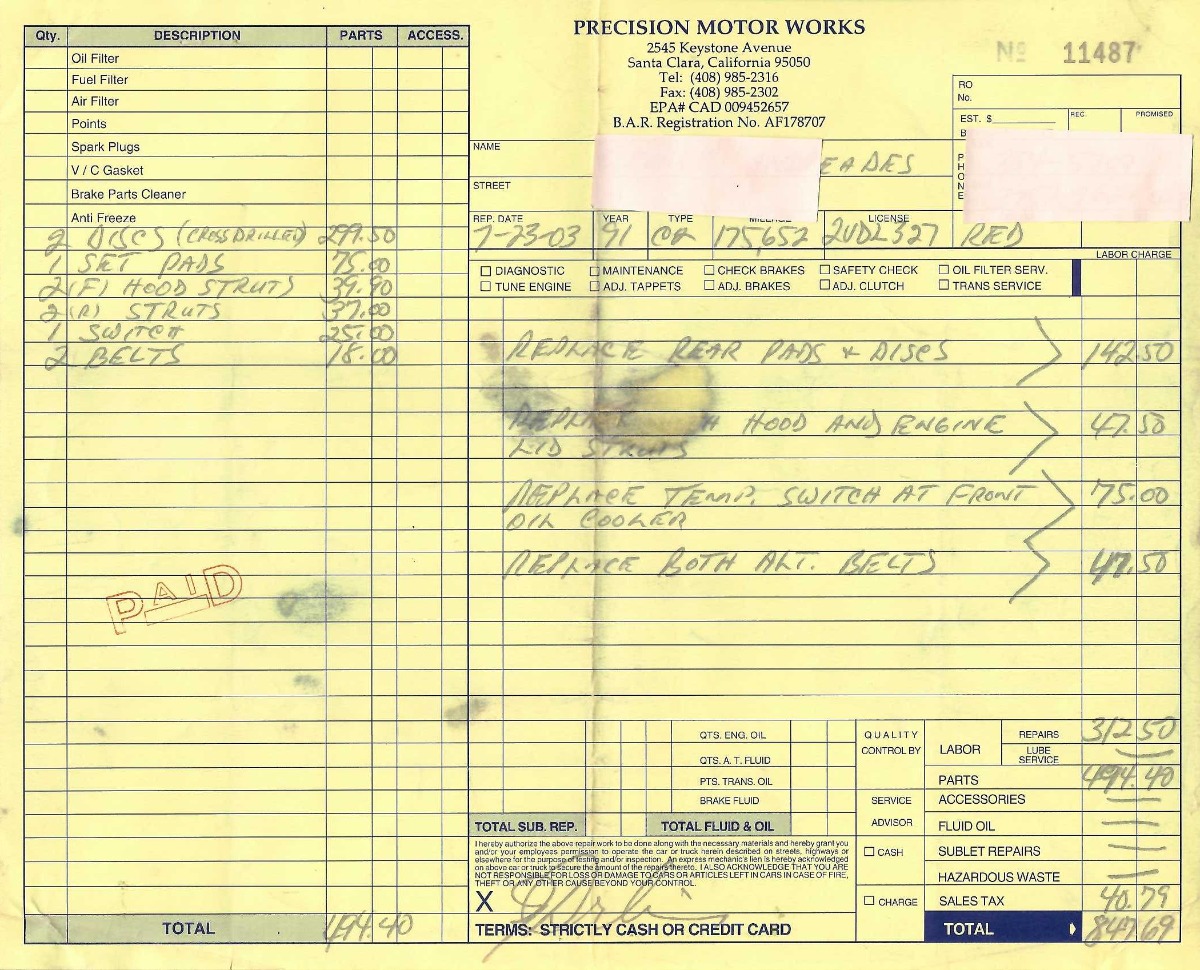 PRECISION MOTOR WORKS
2545 Keystone Avenue
Santa Clara, California 95050
Tel: (408) 985-2316
Fax: (408) 985-2302
EPA# CAD 009452657
B.A.R. Registration No. AF178707
Nº 11487
RO
No.
EST. $
REC.
PROMISED
NAME
EADES
STREET
P
H
O
N
E
REP. DATE YEAR TYPE MILEAGE LICENSE
7-23-03 91 C2 175,652 2UDL327 RED
Qty. DESCRIPTION PARTS ACCESS.
Oil Filter
Fuel Filter
Air Filter
Points
Spark Plugs
V / C Gasket
Brake Parts Cleaner
Anti Freeze
2 DISCS (CROSS DRILLED) 299.50
1 SET PADS 75.00
2 (F) HOOD STRUTS 39.90
2 (R) STRUTS 37.00
1 SWITCH 25.00
2 BELTS 18.00
PAID
TOTAL 494.40
LABOR CHARGE
DIAGNOSTIC MAINTENANCE CHECK BRAKES SAFETY CHECK OIL FILTER SERV.
TUNE ENGINE ADJ. TAPPETS ADJ. BRAKES ADJ. CLUTCH TRANS SERVICE
REPLACE REAR PADS & DISCS 142.50
REPLACE HOOD AND ENGINE 47.50
LID STRUTS
REPLACE TEMP. SWITCH AT FRONT 75.00
OIL COOLER
REPLACE BOTH ALT. BELTS 47.50
QTS. ENG. OIL
QTS. A. T. FLUID
PTS. TRANS. OIL
BRAKE FLUID
TOTAL SUB. REP. TOTAL FLUID & OIL
I hereby authorize the above repair work to be done along with the necessary materials and hereby grant you
and/or your employees permission to operate the car or truck herein described on streets, highways or
elsewhere for the purpose of testing and/or inspection. An express mechanic's lien is hereby acknowledged
on above car or truck to secure the amount of the repairs thereto. I ALSO ACKNOWLEDGE THAT YOU ARE
NOT RESPONSIBLE FOR LOSS OR DAMAGE TO CARS OR ARTICLES LEFT IN CARS IN CASE OF FIRE,
THEFT OR ANY OTHER CAUSE BEYOND YOUR CONTROL.
X
TERMS: STRICTLY CASH OR CREDIT CARD
QUALITY
CONTROL BY
SERVICE
ADVISOR
CASH
CHARGE
LABOR REPAIRS 312.50
LUBE
SERVICE
PARTS 494.40
ACCESSORIES
FLUID OIL
SUBLET REPAIRS
HAZARDOUS WASTE
SALES TAX 40.79
TOTAL 847.69